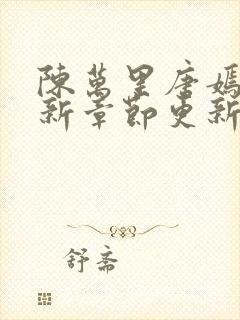 陳萬里唐嫣
新章節更新
舒斋